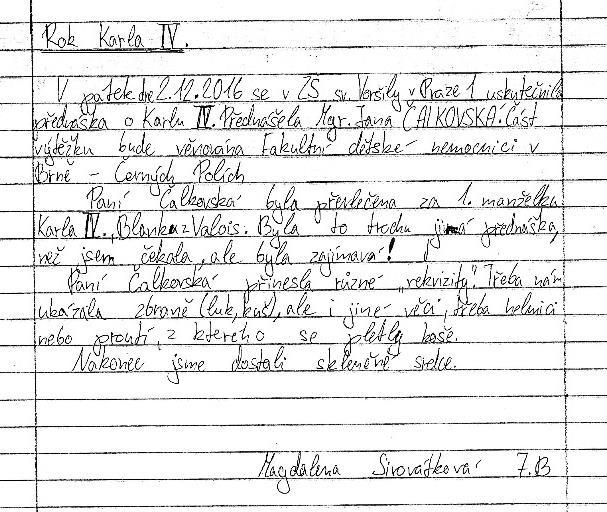 Rok Karla IV.
V pátek dne 2.12.2016 se v ZŠ sv. Voršily v Praze 1 uskutečnila
přednáška o Karlu IV. Přednášela Mgr. Jana ČALKOVSKÁ. Část
výděžku bude věnována Fakultní dětské nemocnici v
Brně - Černých Polích
Paní Čalkovská byla převlečena za 1. manželku
Karla IV., Blanku z Valois. Byla to trochu jiná přednáška,
než jsem čekala, ale byla zajímavá!
Paní Čalkovská přinesla různé "rekvizity". Třeba nám
ukázala zbraně (luk, kuš), ale i jiné věci, třeba helmici
nebo proutí, z kterého se pletly koše.
Nakonec jsme dostali skleněné srdce.
Magdalena Sirovátková 7.B